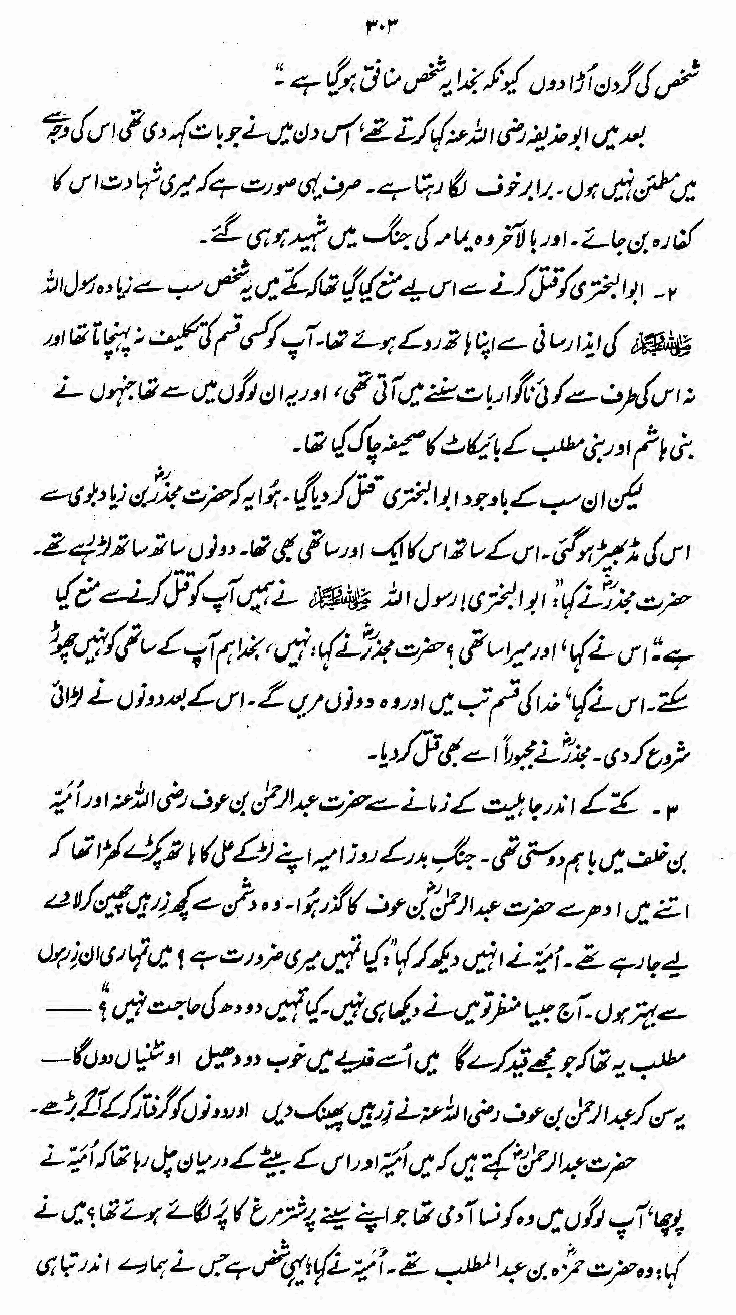 ۳۰۳
شخص کی گردن اُڑا دوں کیونکہ بخدا یہ شخص منافق ہوگیا ہے ۔"
بعد میں ابو حذیفہ رضی اللہ عنہ کہا کرتے تھے، اس دن میں نے جو بات کہہ دی تھی اس کی وجہ سے
میں مطمئن نہیں ہوں۔ برابر خوف لگا رہتا ہے۔ صرف یہی صورت ہے کہ میری شہادت اس کا
کفارہ بن جائے۔ اور بالآخر وہ یمامہ کی جنگ میں شہید ہو ہی گئے۔
۲- ابوالبختری کو قتل کرنے سے اس لیے منع کیا گیا تھا کہ مکے میں یہ شخص سب سے زیادہ رسول اللہ
ﷺ کی ایذا رسانی سے اپنا ہاتھ روکے ہوئے تھا۔ آپ کو کسی قسم کی تکلیف نہ پہنچاتا تھا اور
نہ اس کی طرف سے کوئی ناگوار بات سننے میں آتی تھی، اور یہ ان لوگوں میں سے تھا جنہوں نے
بنی ہاشم اور بنی مطلب کے بائیکاٹ کا صحیفہ چاک کیا تھا۔
لیکن ان سب کے باوجود ابوالبختری قتل کر دیا گیا۔ ہُوا یہ کہ حضرت مجذرؓ بن زیاد بلوی سے
اس کی مڈ بھیڑ ہوگئی۔ اس کے ساتھ اس کا ایک اور ساتھی بھی تھا۔ دونوں ساتھ ساتھ لڑ رہے تھے۔
حضرت مجذرؓ نے کہا: "ابوالبختری! رسول اللہ ﷺ نے ہمیں آپ کو قتل کرنے سے منع کیا
ہے۔" اس نے کہا، اور میرا ساتھی؟ حضرت مجذرؓ نے کہا: نہیں، بخدا ہم آپ کے ساتھی کو نہیں چھوڑ
سکتے۔ اس نے کہا، خدا کی قسم تب میں اور وہ دونوں مریں گے۔ اس کے بعد دونوں نے لڑائی
شروع کر دی۔ مجذرؓ نے مجبوراً اسے بھی قتل کر دیا۔
۳- مکے کے اندر جاہلیت کے زمانے سے حضرت عبدالرحمٰن بن عوف رضی اللہ عنہ اور اُمَیَّہ
بن خلف میں باہم دوستی تھی۔ جنگِ بدر کے روز امیہ اپنے لڑکے علی کا ہاتھ پکڑے کھڑا تھا کہ
اتنے میں ادھر سے حضرت عبدالرحمٰنؓ بن عوف کا گذر ہُوا۔ وہ دشمن سے کچھ زِرہیں چھین کر لادے
لیے جا رہے تھے۔ اُمَیَّہ نے انہیں دیکھ کر کہا: "کیا تمہیں میری ضرورت ہے؟ میں تمہاری ان زِرہوں
سے بہتر ہوں۔ آج جیسا منظر تو میں نے دیکھا ہی نہیں۔ کیا تمہیں دودھ کی حاجت نہیں؟" ——
مطلب یہ تھا کہ جو مجھے قید کرے گا میں اُسے فدیے میں خوب دودھیل اونٹنیاں دوں گا —
یہ سن کر عبدالرحمٰن بن عوف رضی اللہ عنہ نے زِرہیں پھینک دیں اور دونوں کو گرفتار کر کے آگے بڑھے۔
حضرت عبدالرحمٰنؓ کہتے ہیں کہ میں اُمَیَّہ اور اس کے بیٹے کے درمیان چل رہا تھا کہ اُمَیَّہ نے
پوچھا، آپ لوگوں میں وہ کونسا آدمی تھا جو اپنے سینے پر شترمرغ کا پَر لگائے ہوئے تھا؟ میں نے
کہا: وہ حضرت حمزہؓ بن عبدالمطلب تھے۔ اُمَیَّہ نے کہا: یہی شخص ہے جس نے ہمارے اندر تباہی